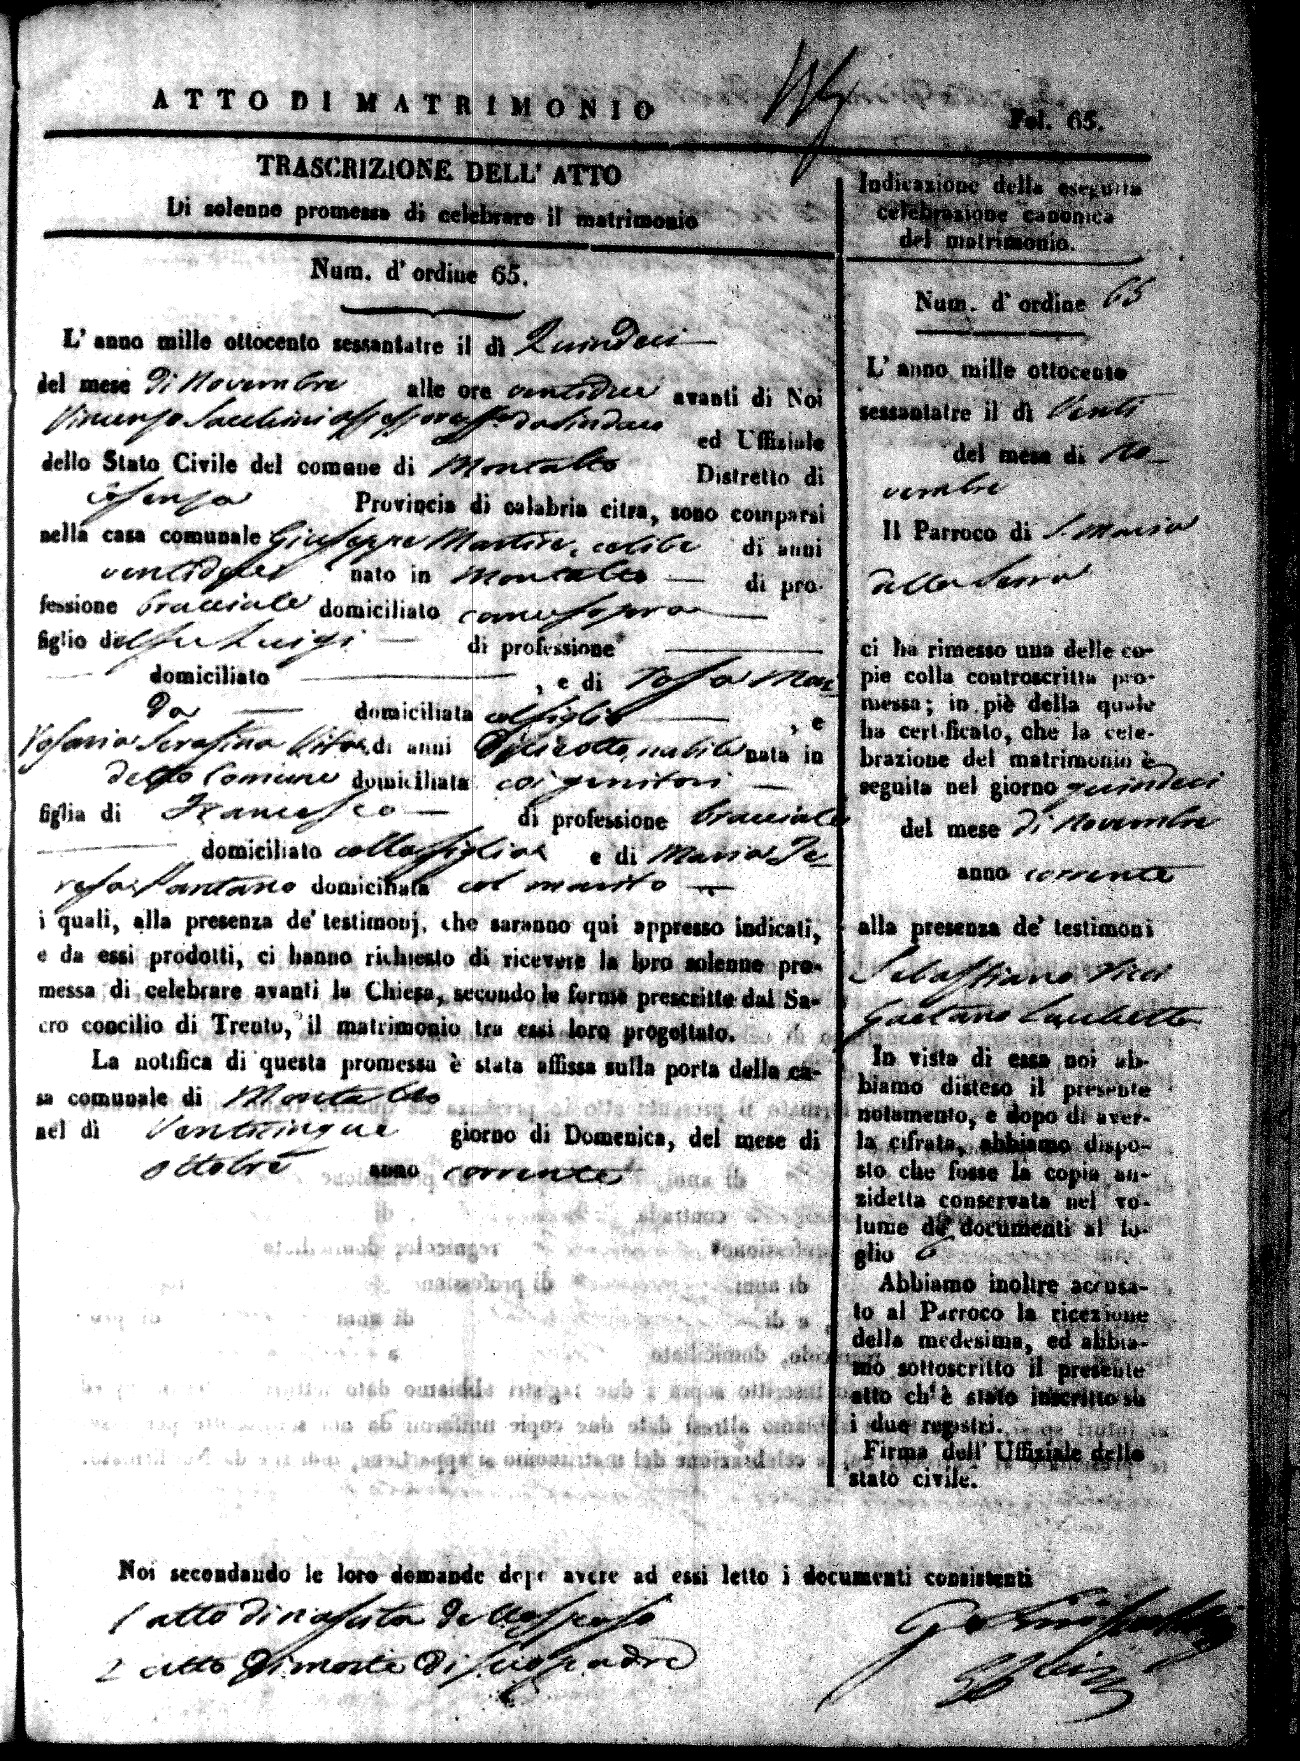 ATTO DI MATRIMONIO
Fol. 65.
TRASCRIZIONE DELL' ATTO
Di solenne promessa di celebrare il matrimonio
Num. d' ordine 65.
L' anno mille ottocento sessantatre il dì Quindeci
del mese di Novembre alle ore ventidue avanti di Noi
Vincenzo Sacchini da Sindaco ed Uffiziale
dello Stato Civile del comune di Montalto Distretto di
Cosenza Provincia di calabria citra, sono comparsi
nella casa comunale Giuseppe Martire, celibe di anni
nato in Montalto di pro-
fessione bracciale domiciliato come sopra
figlio del fu Luigi di professione
domiciliato , e di Rosa Man-
domiciliata col figlio , e
Rosaria Serafina di anni Dieciotto, nubile nata in
detto Comune domiciliata coi genitori
figlia di Francesco di professione bracciale
domiciliato colla figlia e di Maria Te-
resa Pantano domiciliata col marito
i quali, alla presenza de' testimonj, che saranno qui appresso indicati,
e da essi prodotti, ci hanno richiesto di ricevere la loro solenne pro-
messa di celebrare avanti la Chiesa, secondo le forme prescritte dal Sa-
cro concilio di Trento, il matrimonio tra essi loro progettato.
La notifica di questa promessa è stata affissa sulla porta della ca-
sa comunale di Montalto
nel dì Venticinque giorno di Domenica, del mese di
ottobre anno corrente
Noi secondando le loro domande dopo avere ad essi letto i documenti consistenti
1 atto di nascita dello sposo
2 atto di morte di suo padre
Indicazione della eseguita
celebrazione canonica
del matrimonio.
Num. d' ordine 65
L' anno mille ottocento
sessantatre il dì Venti
del mese di No-
vembre
Il Parroco di S. Maria
della Serra
ci ha rimesso una delle co-
pie colla controscritta pro-
messa; in piè della quale
ha certificato, che la cele-
brazione del matrimonio è
seguita nel giorno quindeci
del mese di Novembre
anno corrente
alla presenza de' testimoni
Sebastiano
Gaetano
In vista di essa noi ab-
biamo disteso il presente
notamento, e dopo di aver-
la cifrata, abbiamo dispo-
sto che fosse la copia an-
zidetta conservata nel vo-
lume de' documenti al fo-
glio 6
Abbiamo inoltre accusa-
to al Parroco la ricezione
della medesima, ed abbia-
mo sottoscritto il presente
atto ch' è stato inscritto su
i due registri.
Firma dell' Uffiziale dello
stato civile.